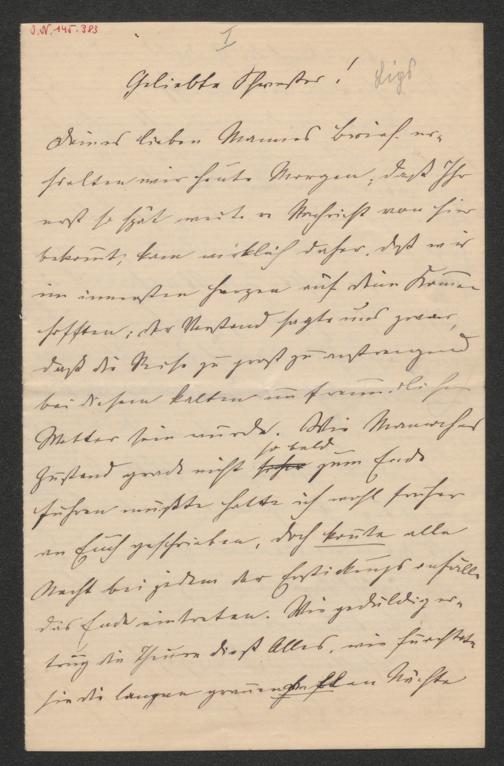 J.N. 145.383
I
Geliebte Schwester!
Deines lieben Mannes Brief er-
hielten wir heute Morgen; daß Ihr
erst so spät weitere Nachricht von hier
bekommt, kam wirklich daher, daß wir
im innersten Herzen auf Dein Kommen
hofften; der Verstand sagte uns zwar,
daß die Reise zu groß zu anstrengend
bei diesem kalten unfreundlichen
Wetter sein würde. Wie
Zustand grade nicht so bald zum Ende
führen mußte hatte ich wohl früher
an Euch geschrieben, doch konnte alle
Nacht bei jedem der Erstickungsanfälle
das Ende eintreten. Wie geduldig er-
trug die Theure dieß Alles, wie fürchtete
sie die langen grauenhaften Nächte